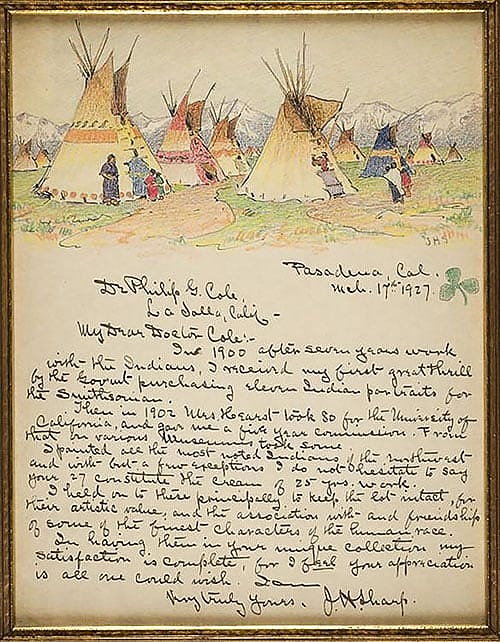 JHS
Pasadena, Cal.
Mch. 17th 1927.
Dr Philip G. Cole,
La Jolla, Calif -
My Dear Doctor Cole:-
In 1900 after seven years work
with the Indians, I received my first great thrill
by the Govmt purchasing eleven Indian portraits for
the Smithsonian.
Then in 1902 Mrs Hearst took 80 for the University of
California, and gave me a five year commission. From
that on various Museums took some.
I painted all the most noted Indians of the northwest
and with but a few exceptions I do not hesitate to say
your 27 constitute the cream of 25 yrs. work.
I held on to these principally to keep the lot intact, for
their artistic value, and the association with and friendship
of some of the finest characters of the human race.
In having them in your unique collection my
satisfaction is complete for I feel your appreciation
is all one could wish. I am
Very truly yours, J H Sharp.